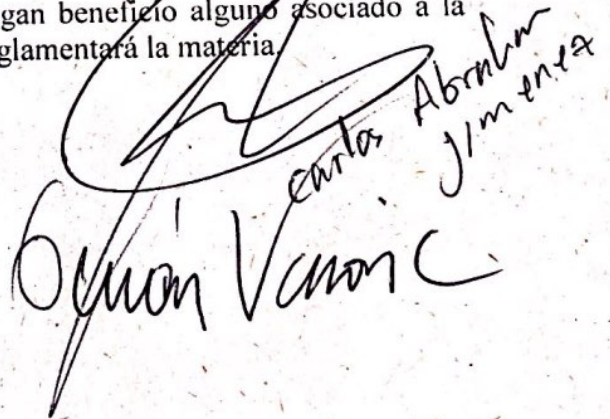 gan beneficio alguno asociado a la
glamentará la materia.
Carlos Abraham
Jimenez